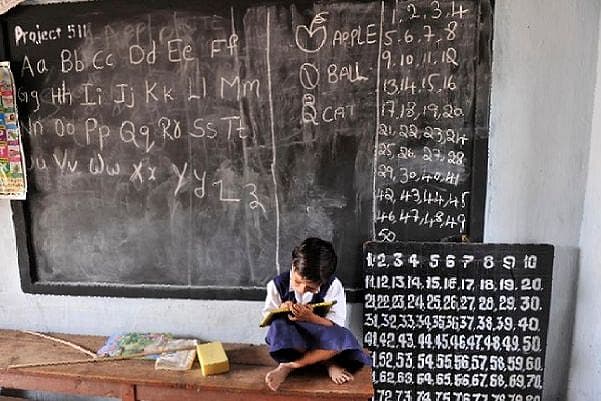 Project 511
Aa Bb Cc Dd Ee Ff
Gg Hh Ii Jj Kk Ll Mm
Nn Oo Pp Qq Rr Ss Tt
Uu Vv Ww Xx Yy Zz
APPLE
BALL
CAT
1, 2, 3, 4
5, 6, 7, 8
9, 10, 11, 12
13, 14, 15, 16
17, 18, 19, 20
21, 22, 23, 24
25, 26, 27, 28
29, 30, 40, 41
42, 43, 44, 45
46, 47, 48, 49
50
1, 2, 3, 4, 5, 6, 7, 8, 9, 10
11, 12, 13, 14, 15, 16, 17, 18, 19, 20.
21, 22, 23, 24, 25, 26, 27, 28, 29, 30.
31, 32, 33, 34, 35, 36, 37, 38, 39, 40.
41, 42, 43, 44, 45, 46, 47, 48, 49, 50.
52, 53, 54, 55, 56, 57, 58, 59, 60.
62, 63, 64, 65, 66, 67, 68, 69, 70.
72, 73, 74, 75, 76, 77, 78, 79, 80.